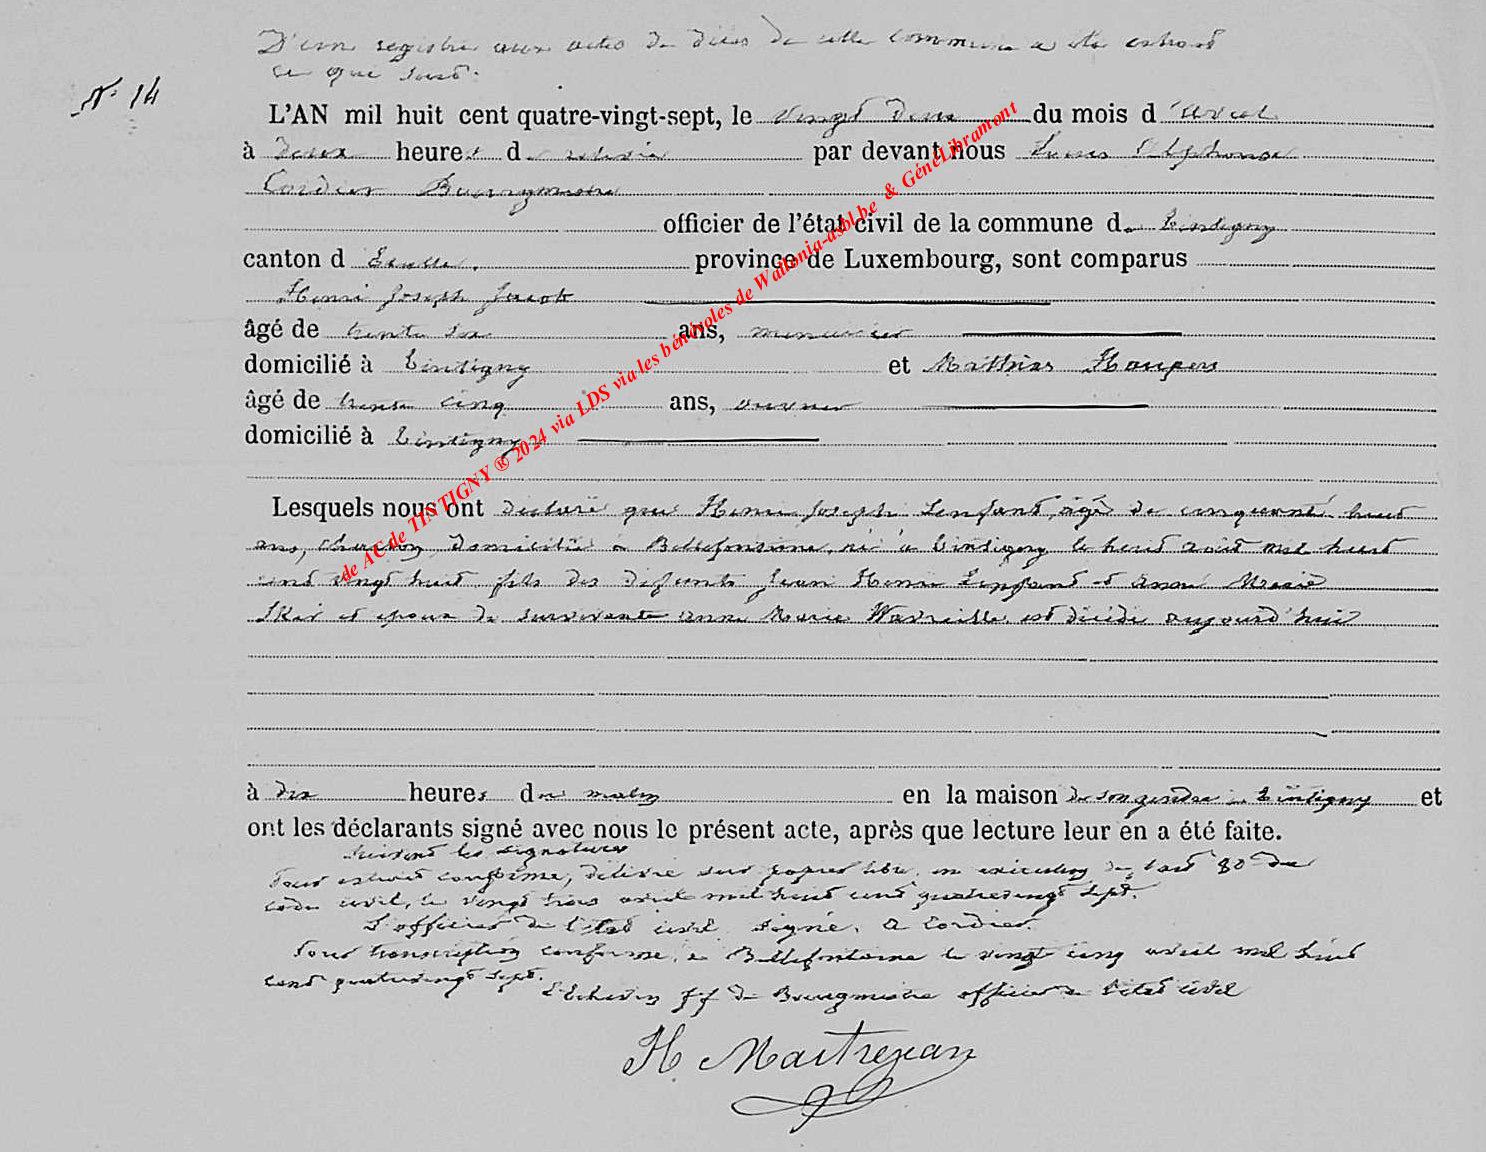 D'un registre aux actes de décès de cette commune a été extrait
ce que suit.
N° 14
L'AN mil huit cent quatre-vingt-sept, le vingt deux du mois d'avril
à deux heures d relevée par devant nous Alphonse
Cordier Bourgmestre
officier de l'état civil de la commune de Tintigny
canton d Etalle, province de Luxembourg, sont comparus
Henri Joseph Jacob
âgé de trente six ans, menuisier
domicilié à Tintigny et Mathias Houpers
âgé de trente cinq ans, ouvrier
domicilié à Tintigny
Lesquels nous ont déclaré que Henri Joseph Lenfant, âgé de cinquante huit
ans, charron, domicilié à Bellefontaine, né à Tintigny le huit août mil huit
cent vingt huit fils des défunts Jean Henri Lenfant et Anne Marie
et époux de survivante Anne Marie Wavreille est décédé aujourd'hui
à dix heures du matin en la maison de son gendre à Tintigny et
ont les déclarants signé avec nous le présent acte, après que lecture leur en a été faite.
Suivent les signatures
Pour extrait conforme, délivré sur papier libre en exécution de l'art 80 du
code civil, le vingt trois avril mil huit cent quatrevingt sept.
L'officier de l'état civil signé, A Cordier.
Pour transcription conforme, à Bellefontaine le vingt cinq avril mil huit
cent quatrevingt sept.
L'Echevin ff de Bourgmestre officier de l'état civil
H. Maitrejean
de AC de TINTIGNY ® 2024 via LDS via les bénévoles de Wallonia-asbl.be & GénéLibramont